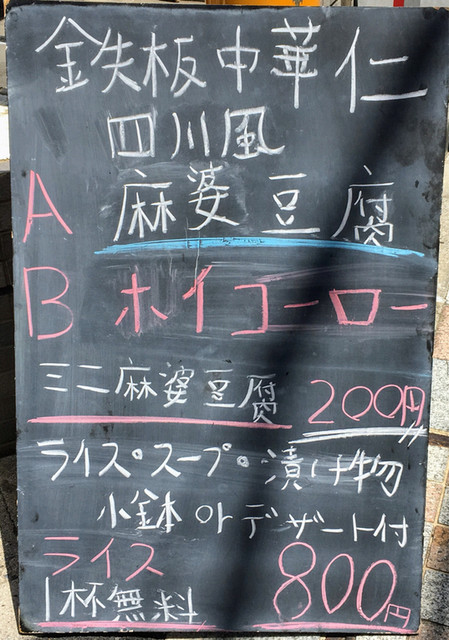 鉄板中華 仁
四川風
A 麻婆豆腐
B ホイコーロー
ミニ麻婆豆腐 200円
ライス・スープ・漬け物
小鉢 or デザート付
ライス
1杯無料 800円